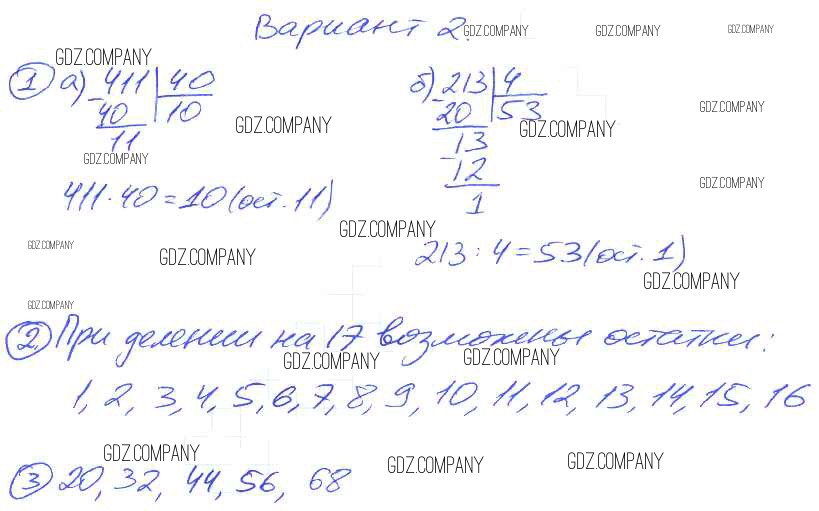 Вариант 2.
GDZ.COMPANY GDZ.COMPANY GDZ.COMPANY
GDZ.COMPANY
1 а) 411 | 40
40 | 10
11
б) 213 | 4
20 | 53
13
12
1
GDZ.COMPANY GDZ.COMPANY GDZ.COMPANY
GDZ.COMPANY GDZ.COMPANY
411 · 40 = 10 (ост. 11)
GDZ.COMPANY
213 : 4 = 53 (ост. 1)
GDZ.COMPANY GDZ.COMPANY GDZ.COMPANY
GDZ.COMPANY
2. При делении на 17 возможны остатки:
GDZ.COMPANY GDZ.COMPANY
1, 2, 3, 4, 5, 6, 7, 8, 9, 10, 11, 12, 13, 14, 15, 16
GDZ.COMPANY GDZ.COMPANY GDZ.COMPANY
3 20, 32, 44, 56, 68